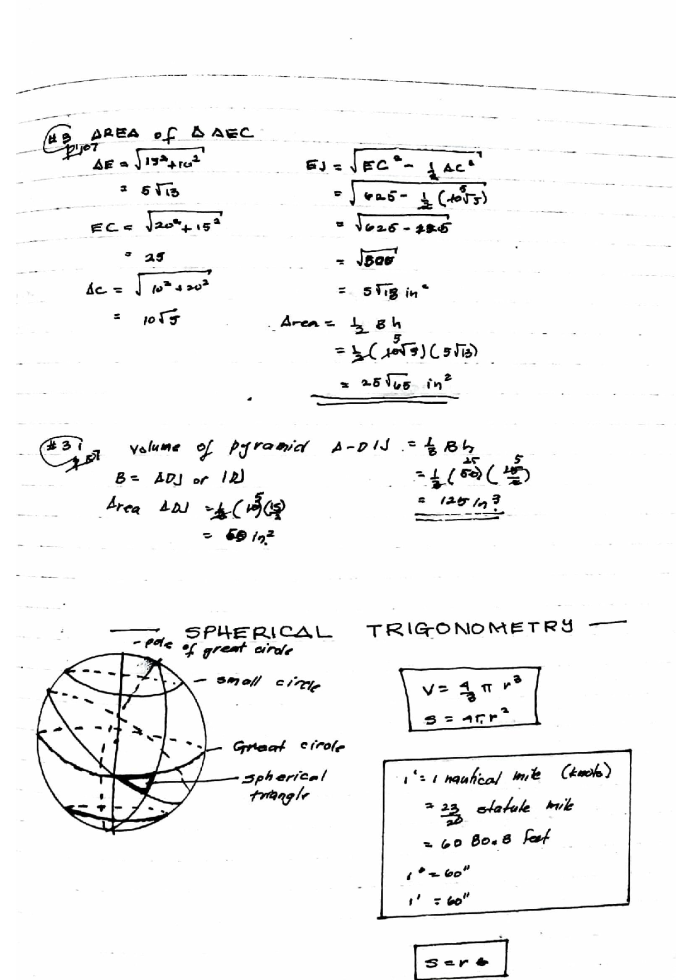 #3 AREA of Δ AEC
p107
AE = √15²+10²
= 5√13
EC = √20²+15²
= 25
AC = √10²+20²
= 10√5
EJ = √EC² - ½ AC²
= √625 - ½ (10√5)
= √625 -
=
= 5√13 in²
Area = ½ Bh
= ½ (10√5) (5√13)
5
= 25√65 in²
#3i volume of pyramid A-DIJ = ⅓ Bh
B = ADJ or IDJ
Area ADJ =
= in.²
= 125 in³
SPHERICAL TRIGONOMETRY
- pole of great circle
- small circle
Great circle
- spherical triangle
V = 4/3 π r³
S = 4πr²
1' = 1 nautical mile (knots)
= 23/20 statute mile
= 6080.8 feet
1° = 60"
1' = 60"
S = r θ